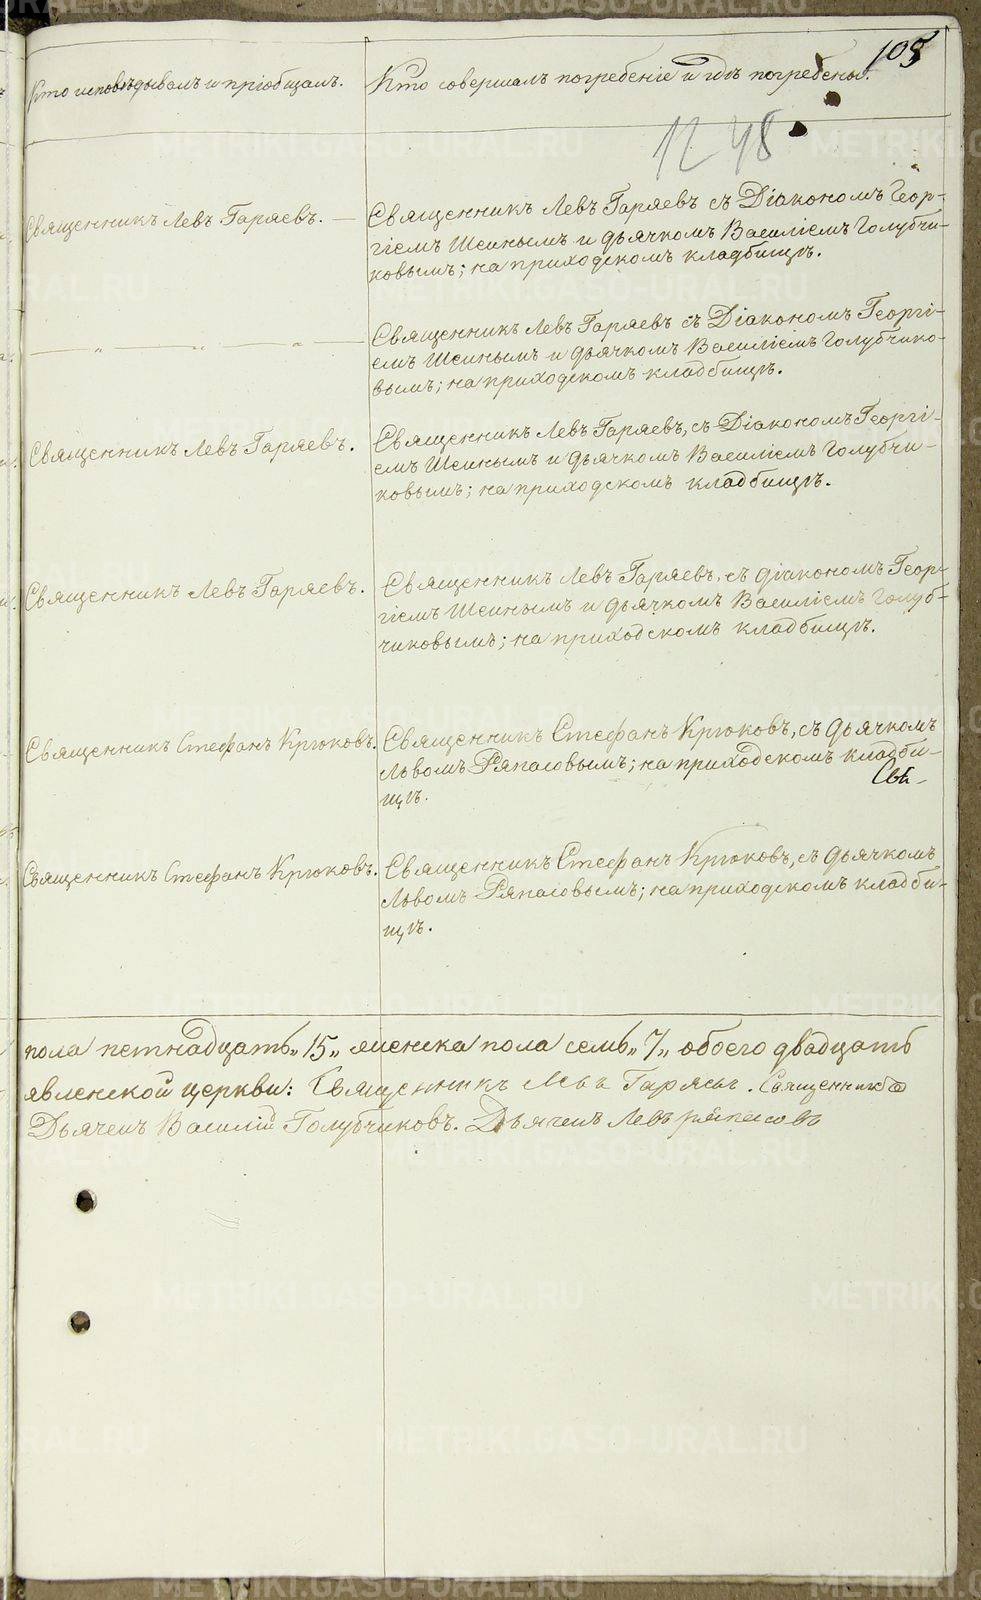 105
Кто исповѣдывалъ и пріобщалъ.
Кто совершалъ погребеніе и гдѣ погребены.
12 48
Священникъ Левъ Гаряевъ. —
Священникъ Левъ Гаряевъ съ Діакономъ Геор-
гіемъ Шеинымъ и дьячкомъ Василіемъ Голубчи-
ковымъ; на приходскомъ кладбищѣ.
— „ — „ — „ —
Священникъ Левъ Гаряевъ съ Діакономъ Георгі-
емъ Шеинымъ и дьячкомъ Василіемъ Голубчико-
вымъ; на приходскомъ кладбищѣ.
Священникъ Левъ Гаряевъ.
Священникъ Левъ Гаряевъ, съ Діакономъ Георгі-
емъ Шеинымъ и дьячкомъ Василіемъ Голубчи-
ковымъ; на приходскомъ кладбищѣ.
Священникъ Левъ Гаряевъ.
Священникъ Левъ Гаряевъ, съ діакономъ Геор-
гіемъ Шеинымъ и дьячкомъ Василіемъ Голуб-
чиковымъ; на приходскомъ кладбищѣ.
Священникъ Стефанъ Крюковъ.
Священникъ Стефанъ Крюковъ, съ дьячкомъ
Львомъ Ряпасовымъ; на приходскомъ кладби-
щѣ.
Свя-
Священникъ Стефанъ Крюковъ.
Священникъ Стефанъ Крюковъ, съ дьячкомъ
Львомъ Ряпасовымъ; на приходскомъ кладби-
щѣ.
пола петнадцать „15„ женска пола семь „7„ обоего двадцать
явленской церкви: Священникъ Левъ Гаряевъ. Священникъ
Дьячекъ Василій Голубчиковъ. Дьячекъ Левъ Ряпасовъ
METRIKI.GASO-URAL.RU